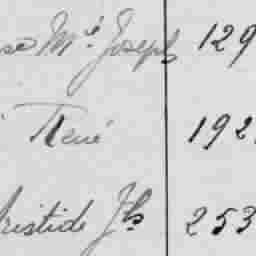 se Mié Joseph 129
René 192
Aristide fls 253